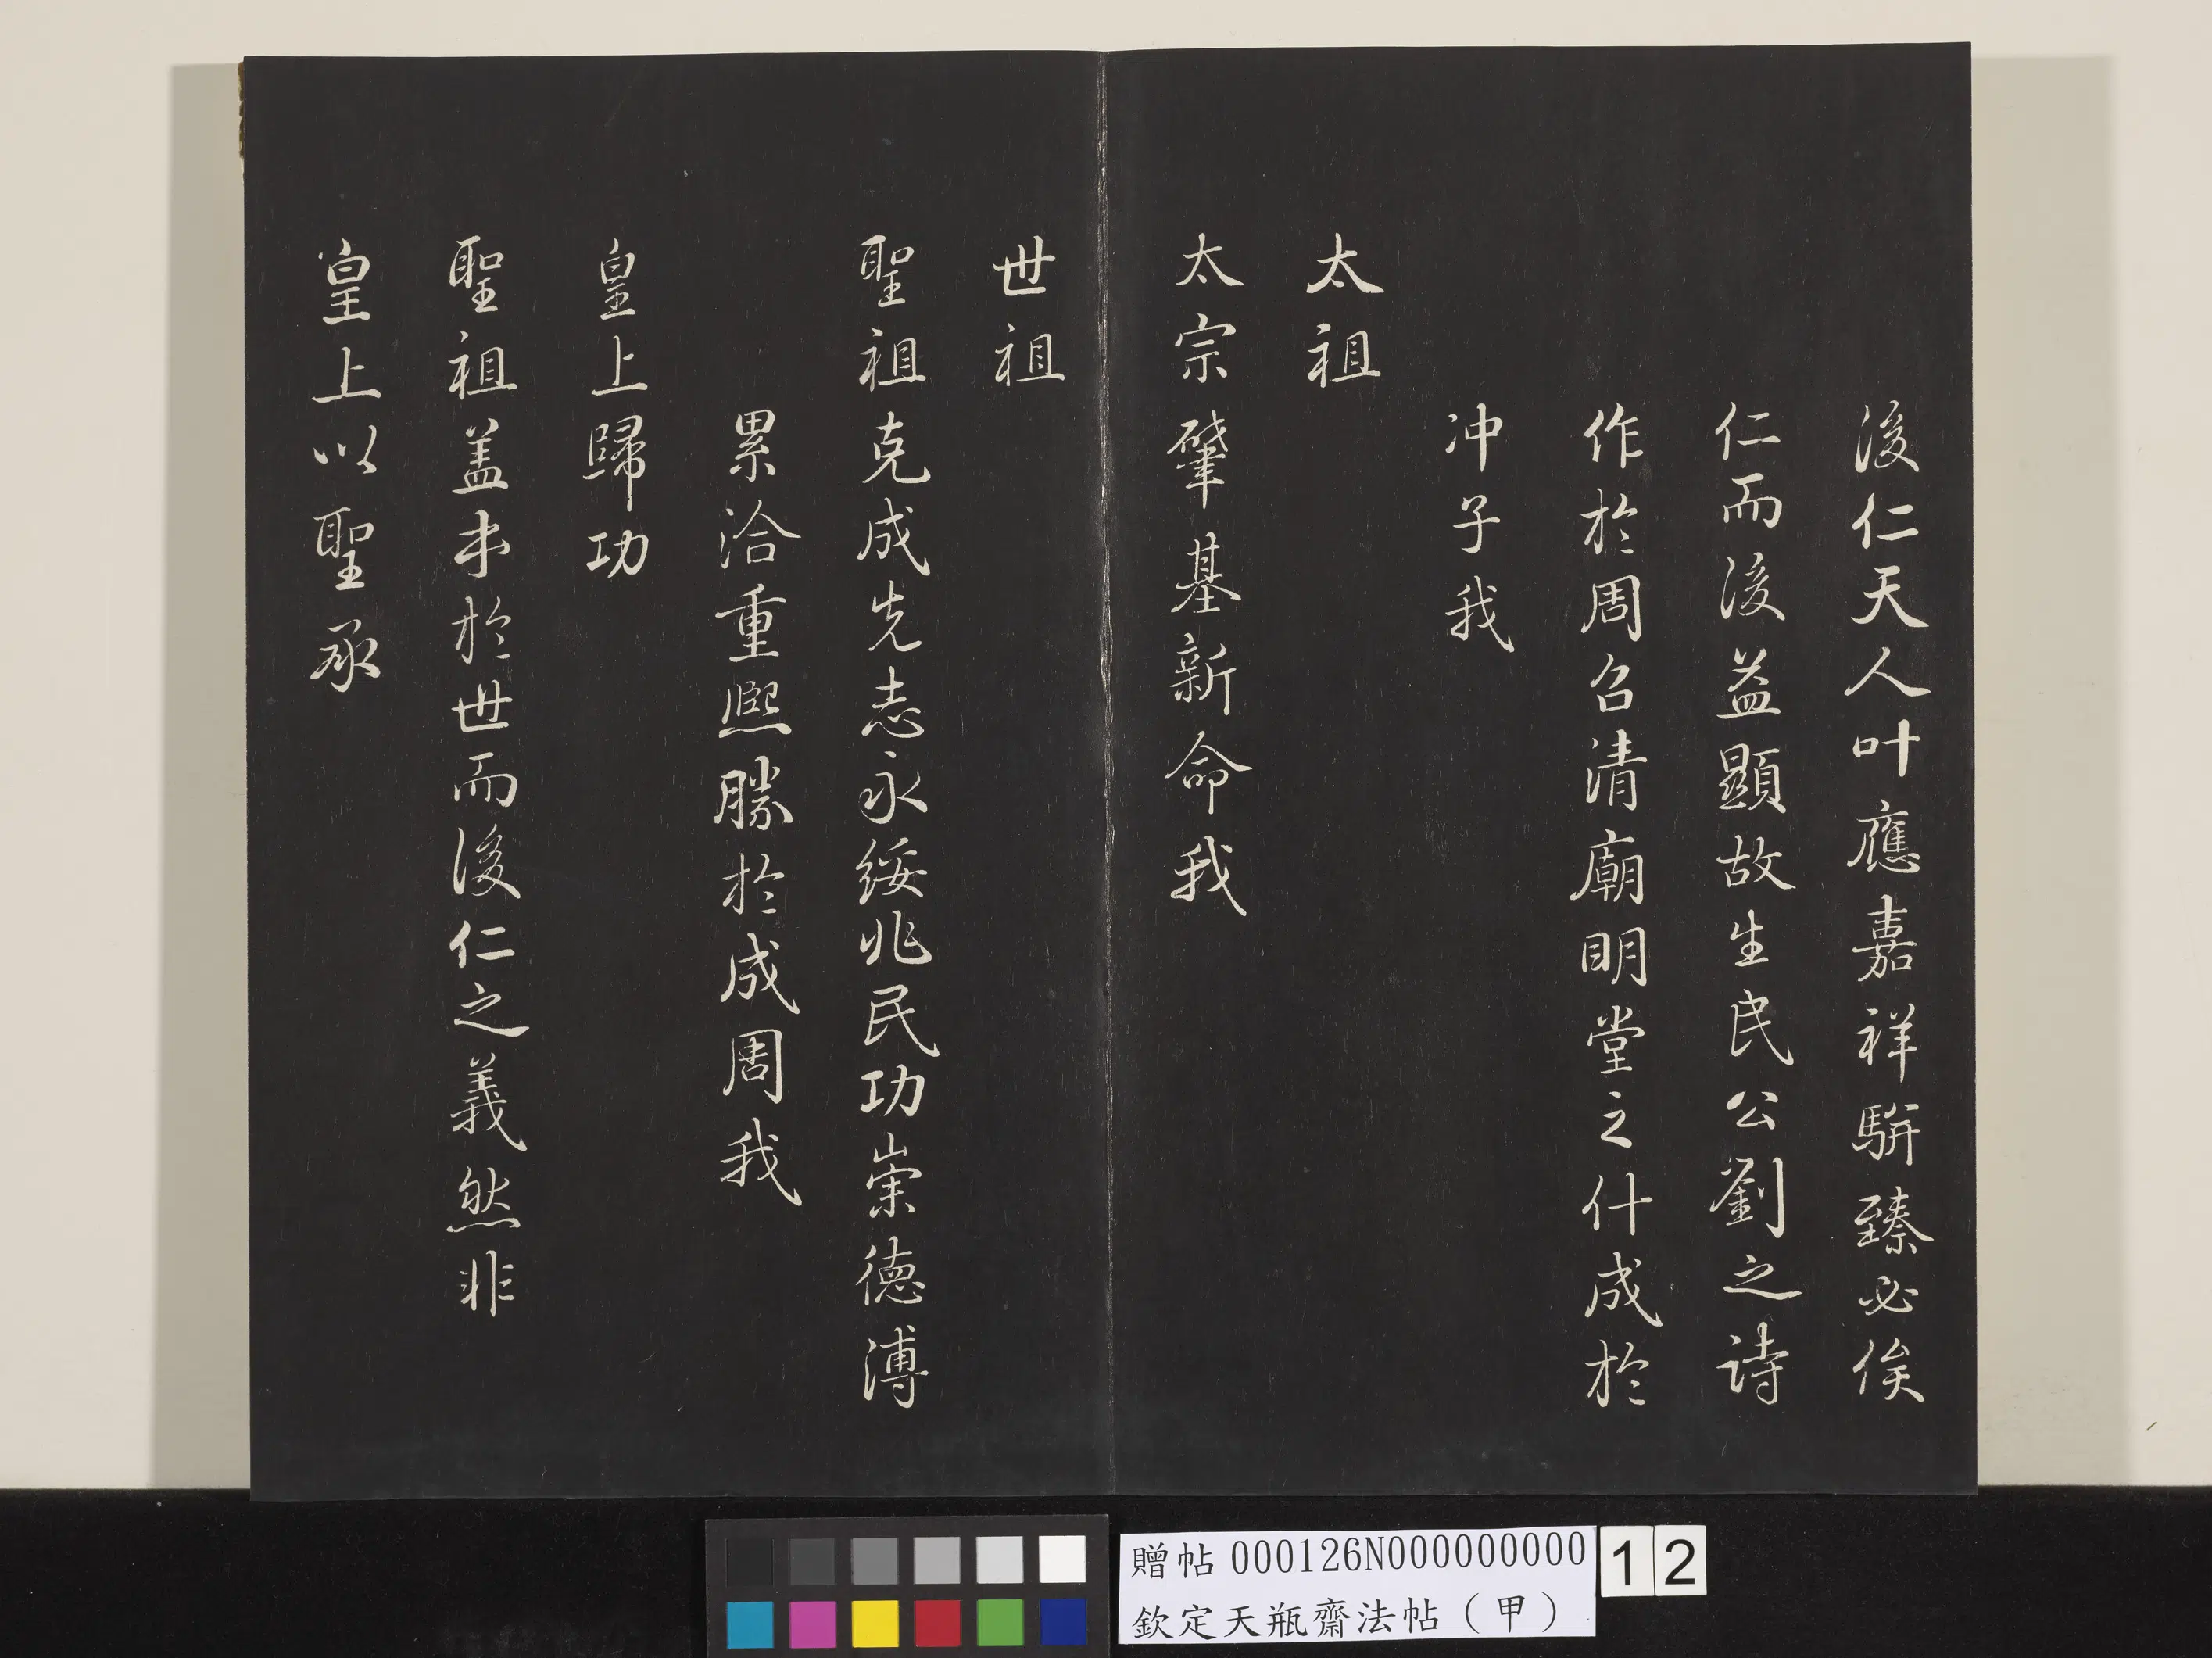 後仁天人叶應嘉祥駢臻必俟
仁而後益顯故生民公劉之詩
作於周召清廟明堂之什成於
冲子我
太祖
太宗肇基新命我
世祖
聖祖克成先志永綏兆民功崇德溥
累洽重熙勝於成周我
皇上歸功
聖祖盖本於世而後仁之義然非
皇上以聖承
贈帖000126N000000000
欽定天瓶齋法帖（甲）
12